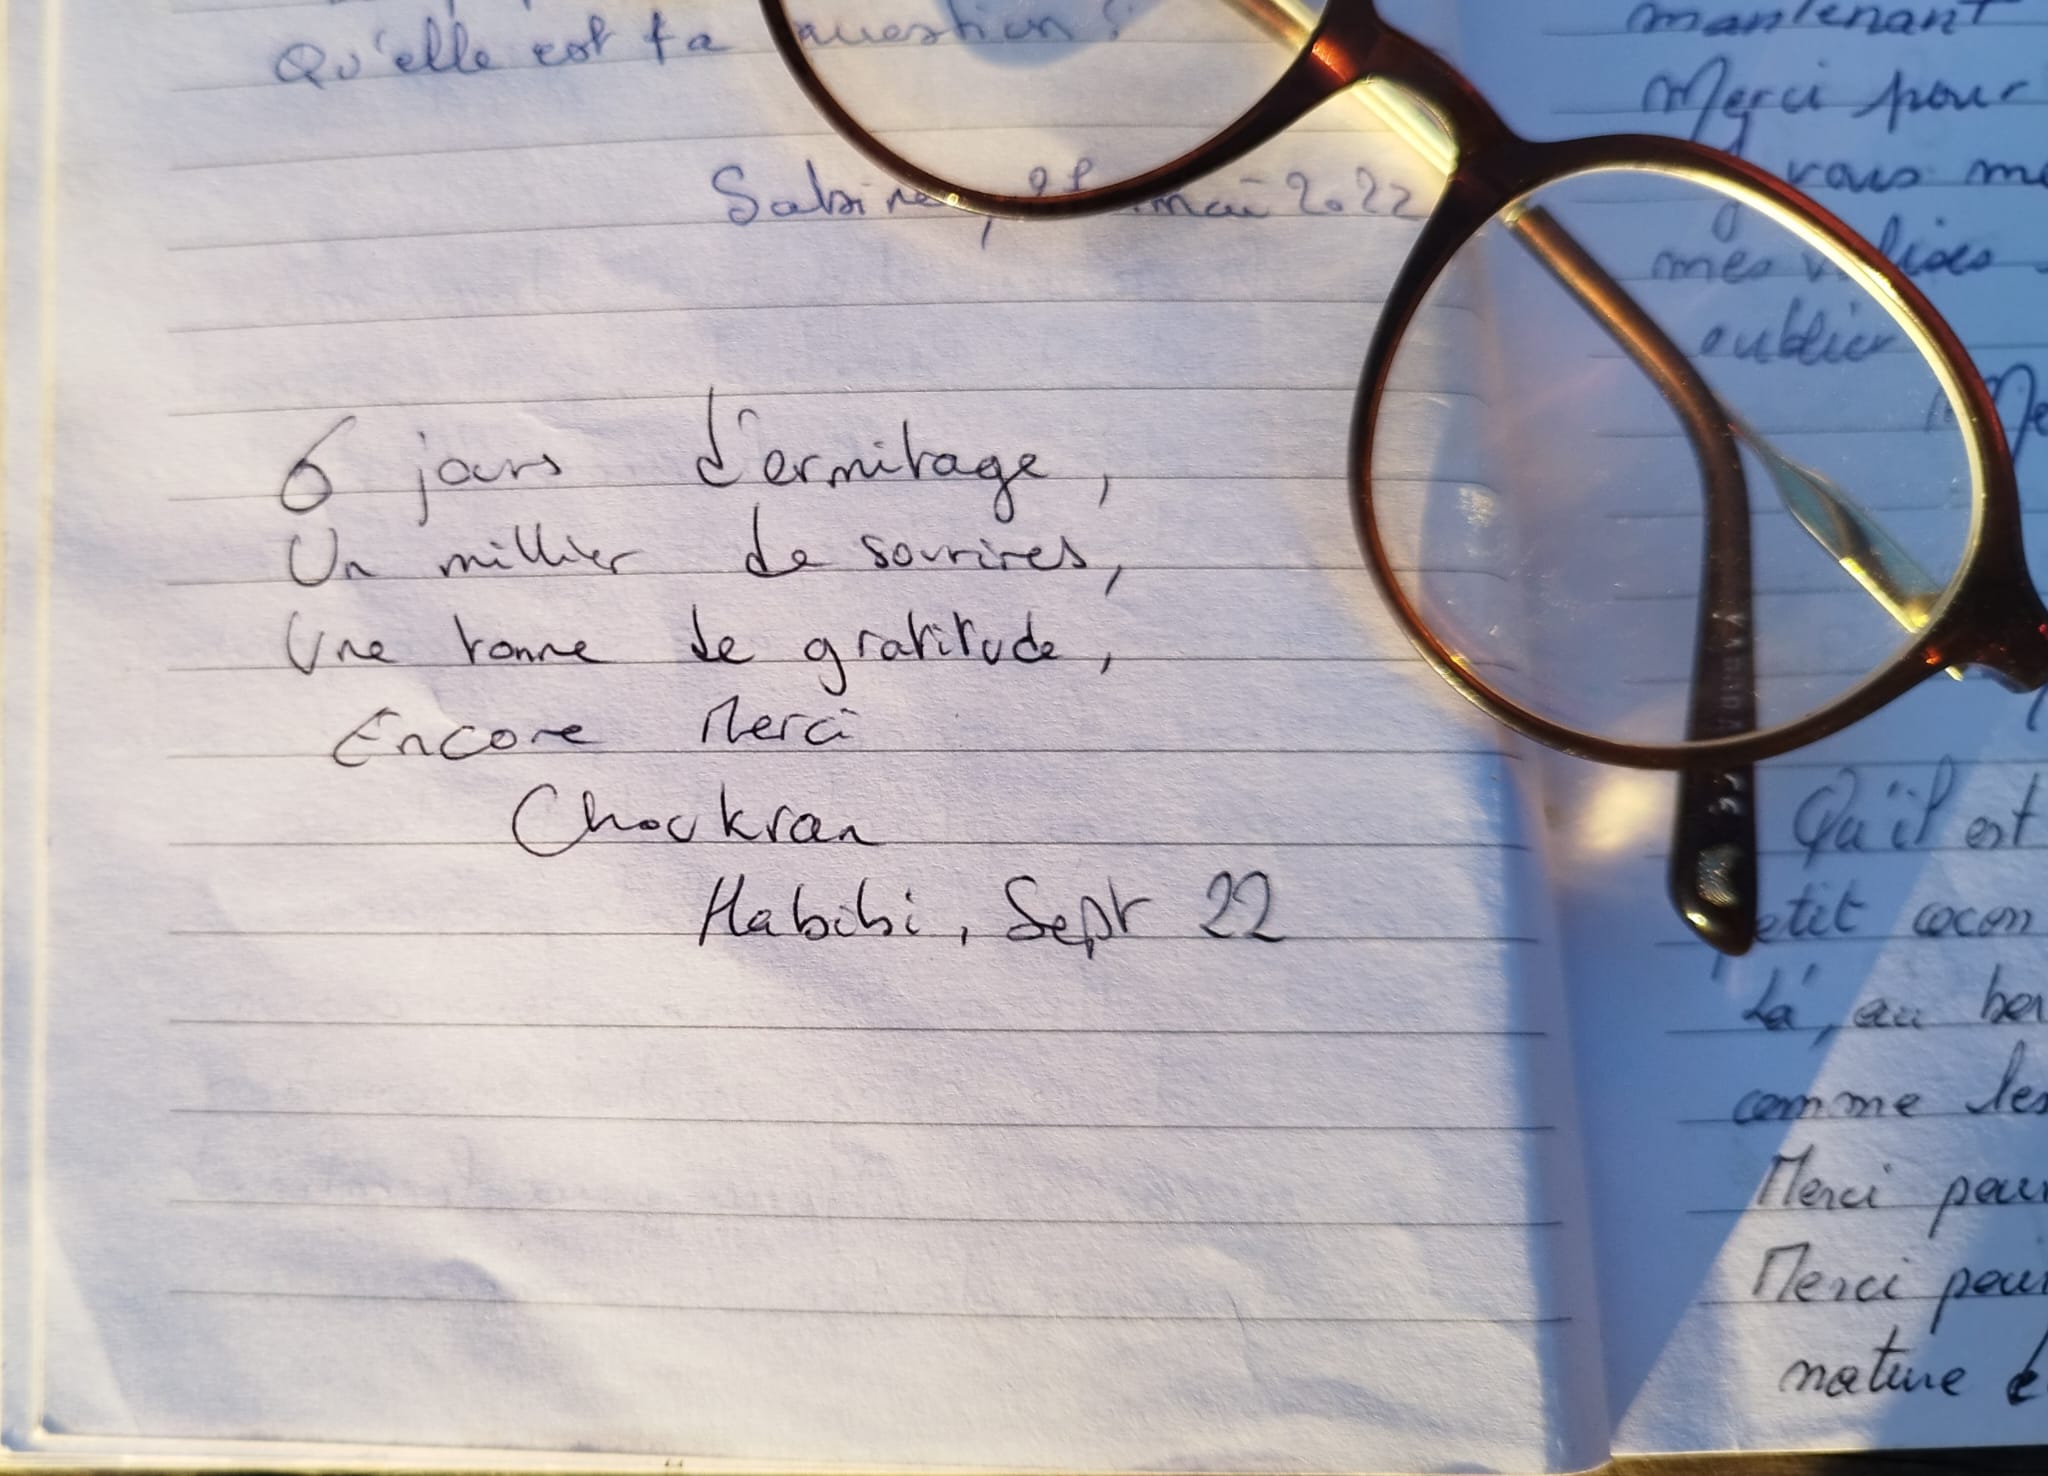 Qu'elle est ta question ?
Sabine, mai 2022
6 jours d'ermitage,
Un millier de sourires,
Une tonne de gratitude,
Encore Merci
Choukran
Habibi, Sept 22
maintenant
Merci pour
vous
mes valises
oublier
Qu'il est
petit cocon
Là, au
comme les
Merci pour
Merci pour
nature